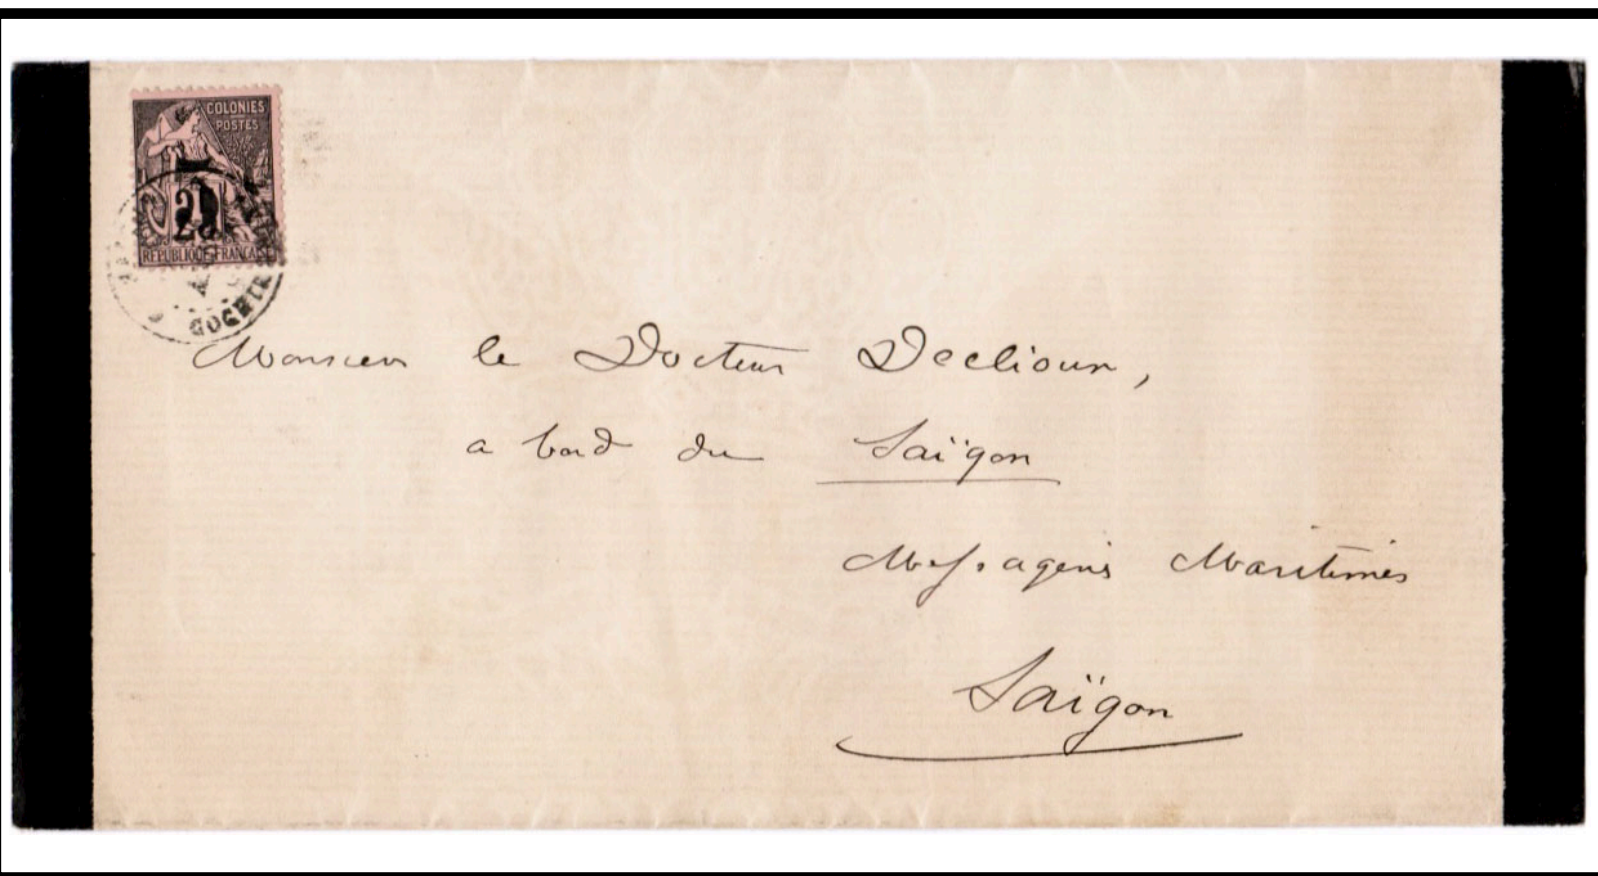 COLONIES
POSTES
RÉPUBLIQUE FRANÇAISE
Monsieur le Docteur Declioun,
a bord du Saïgon
Messageries Maritimes
Saïgon